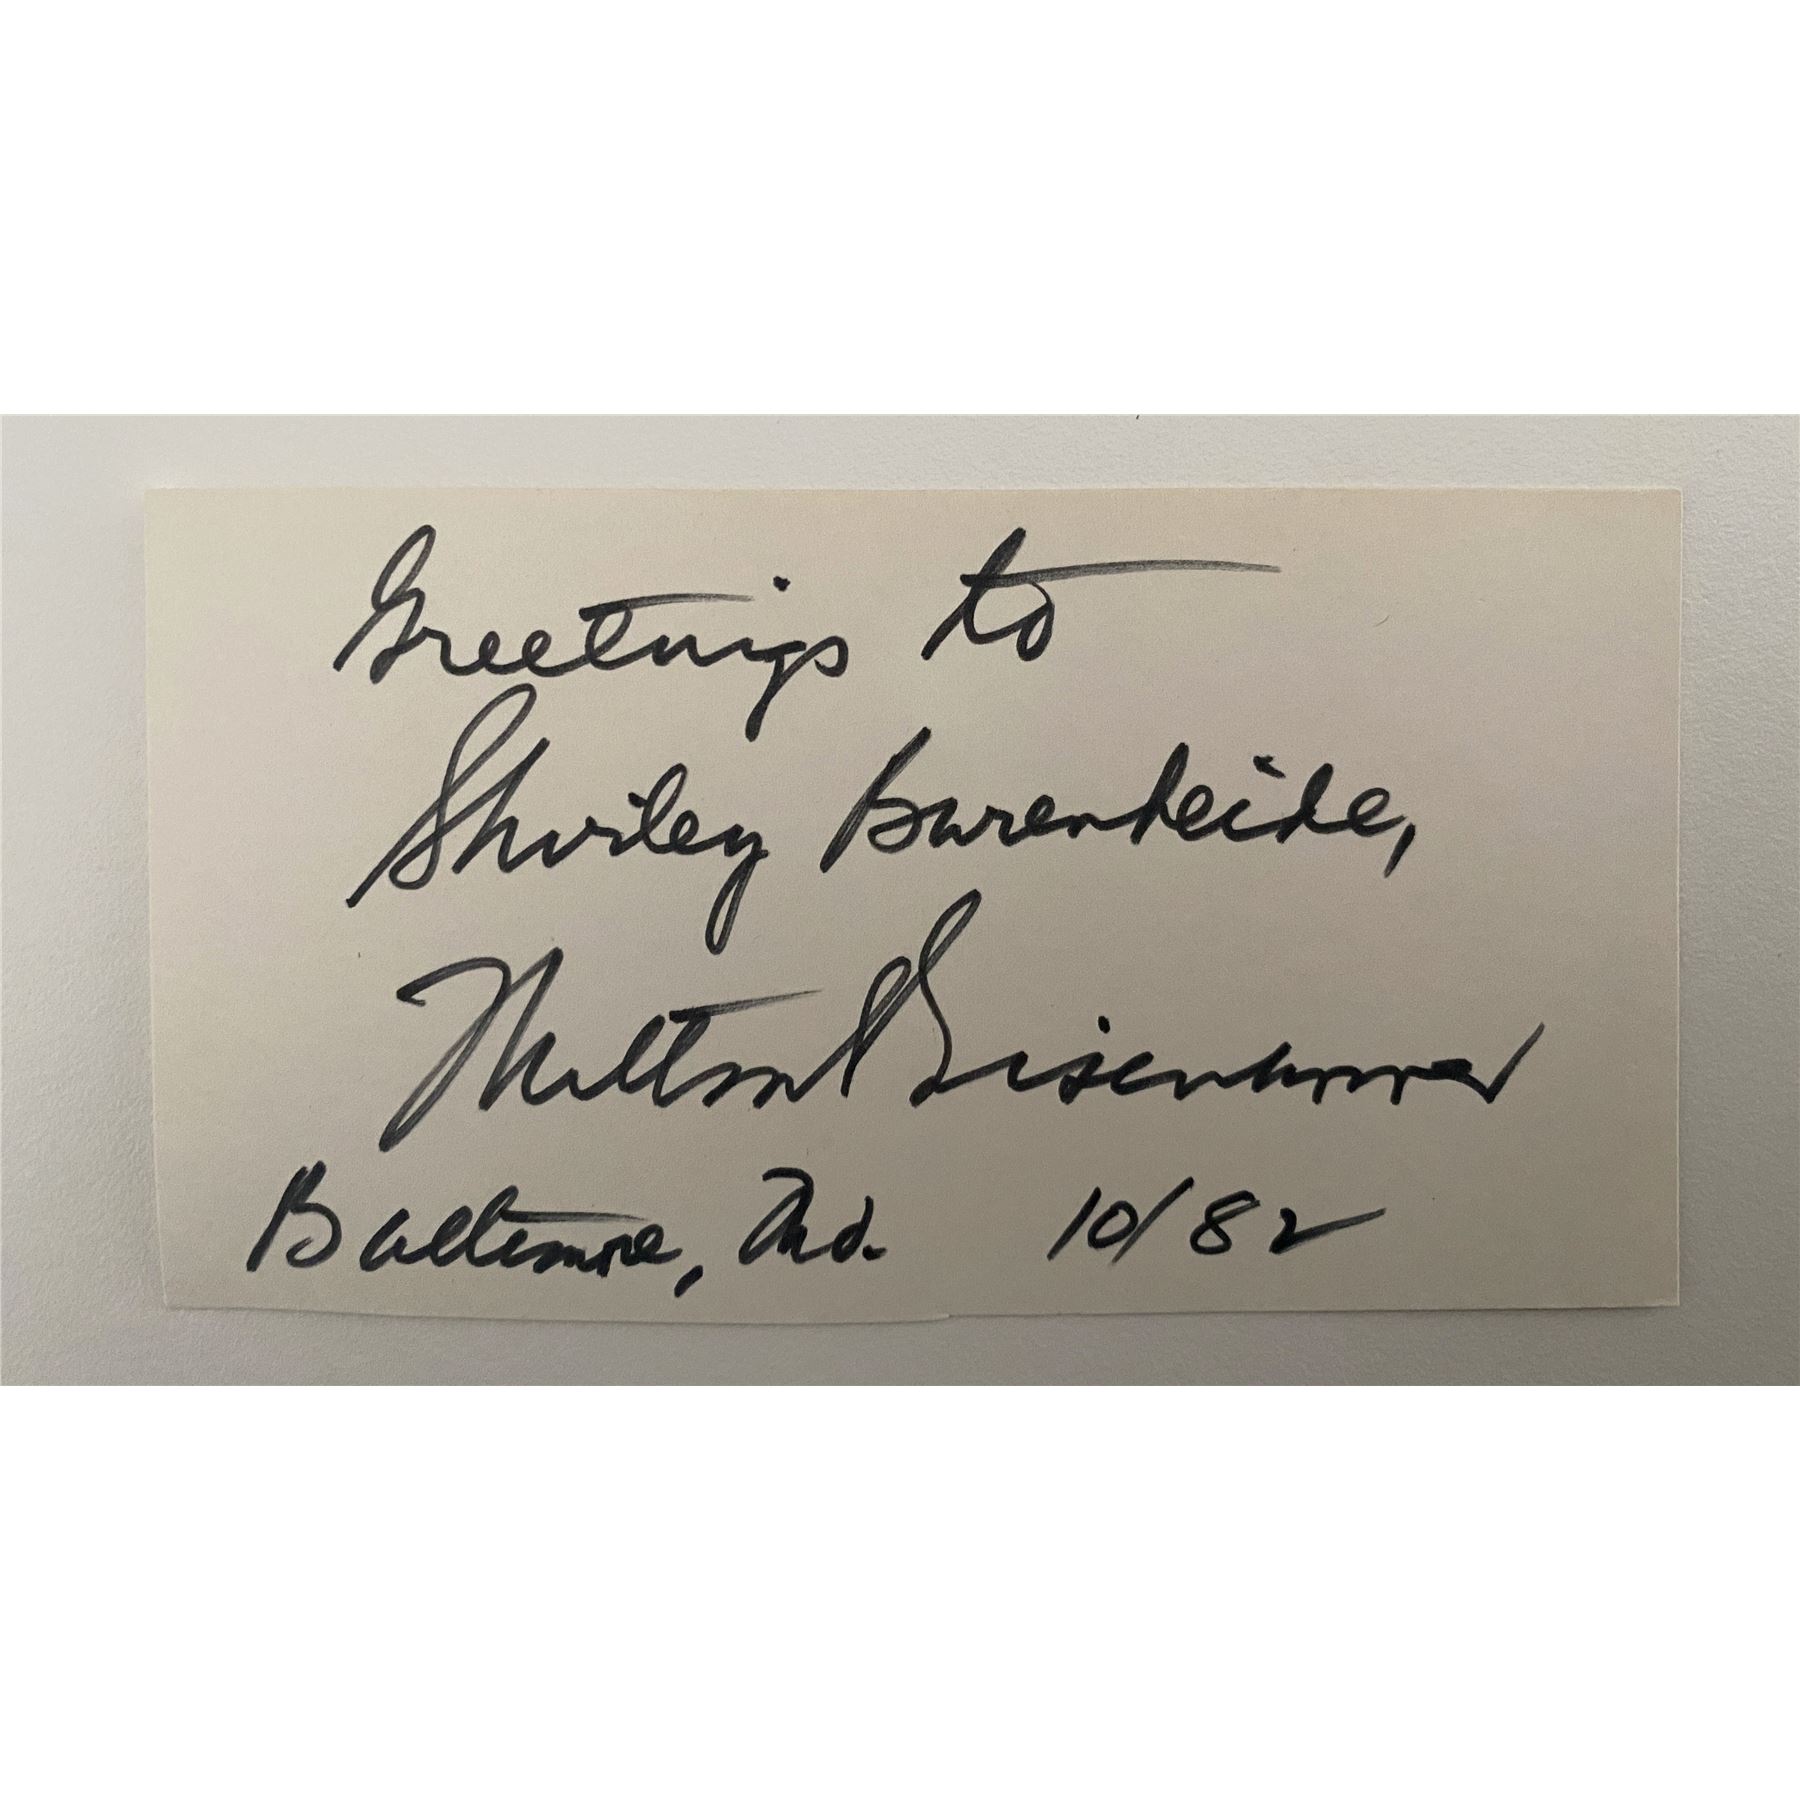 Greetings to
Shirley Burenheide,
Milton Eisenhower
Baltimore, Md. 10/82